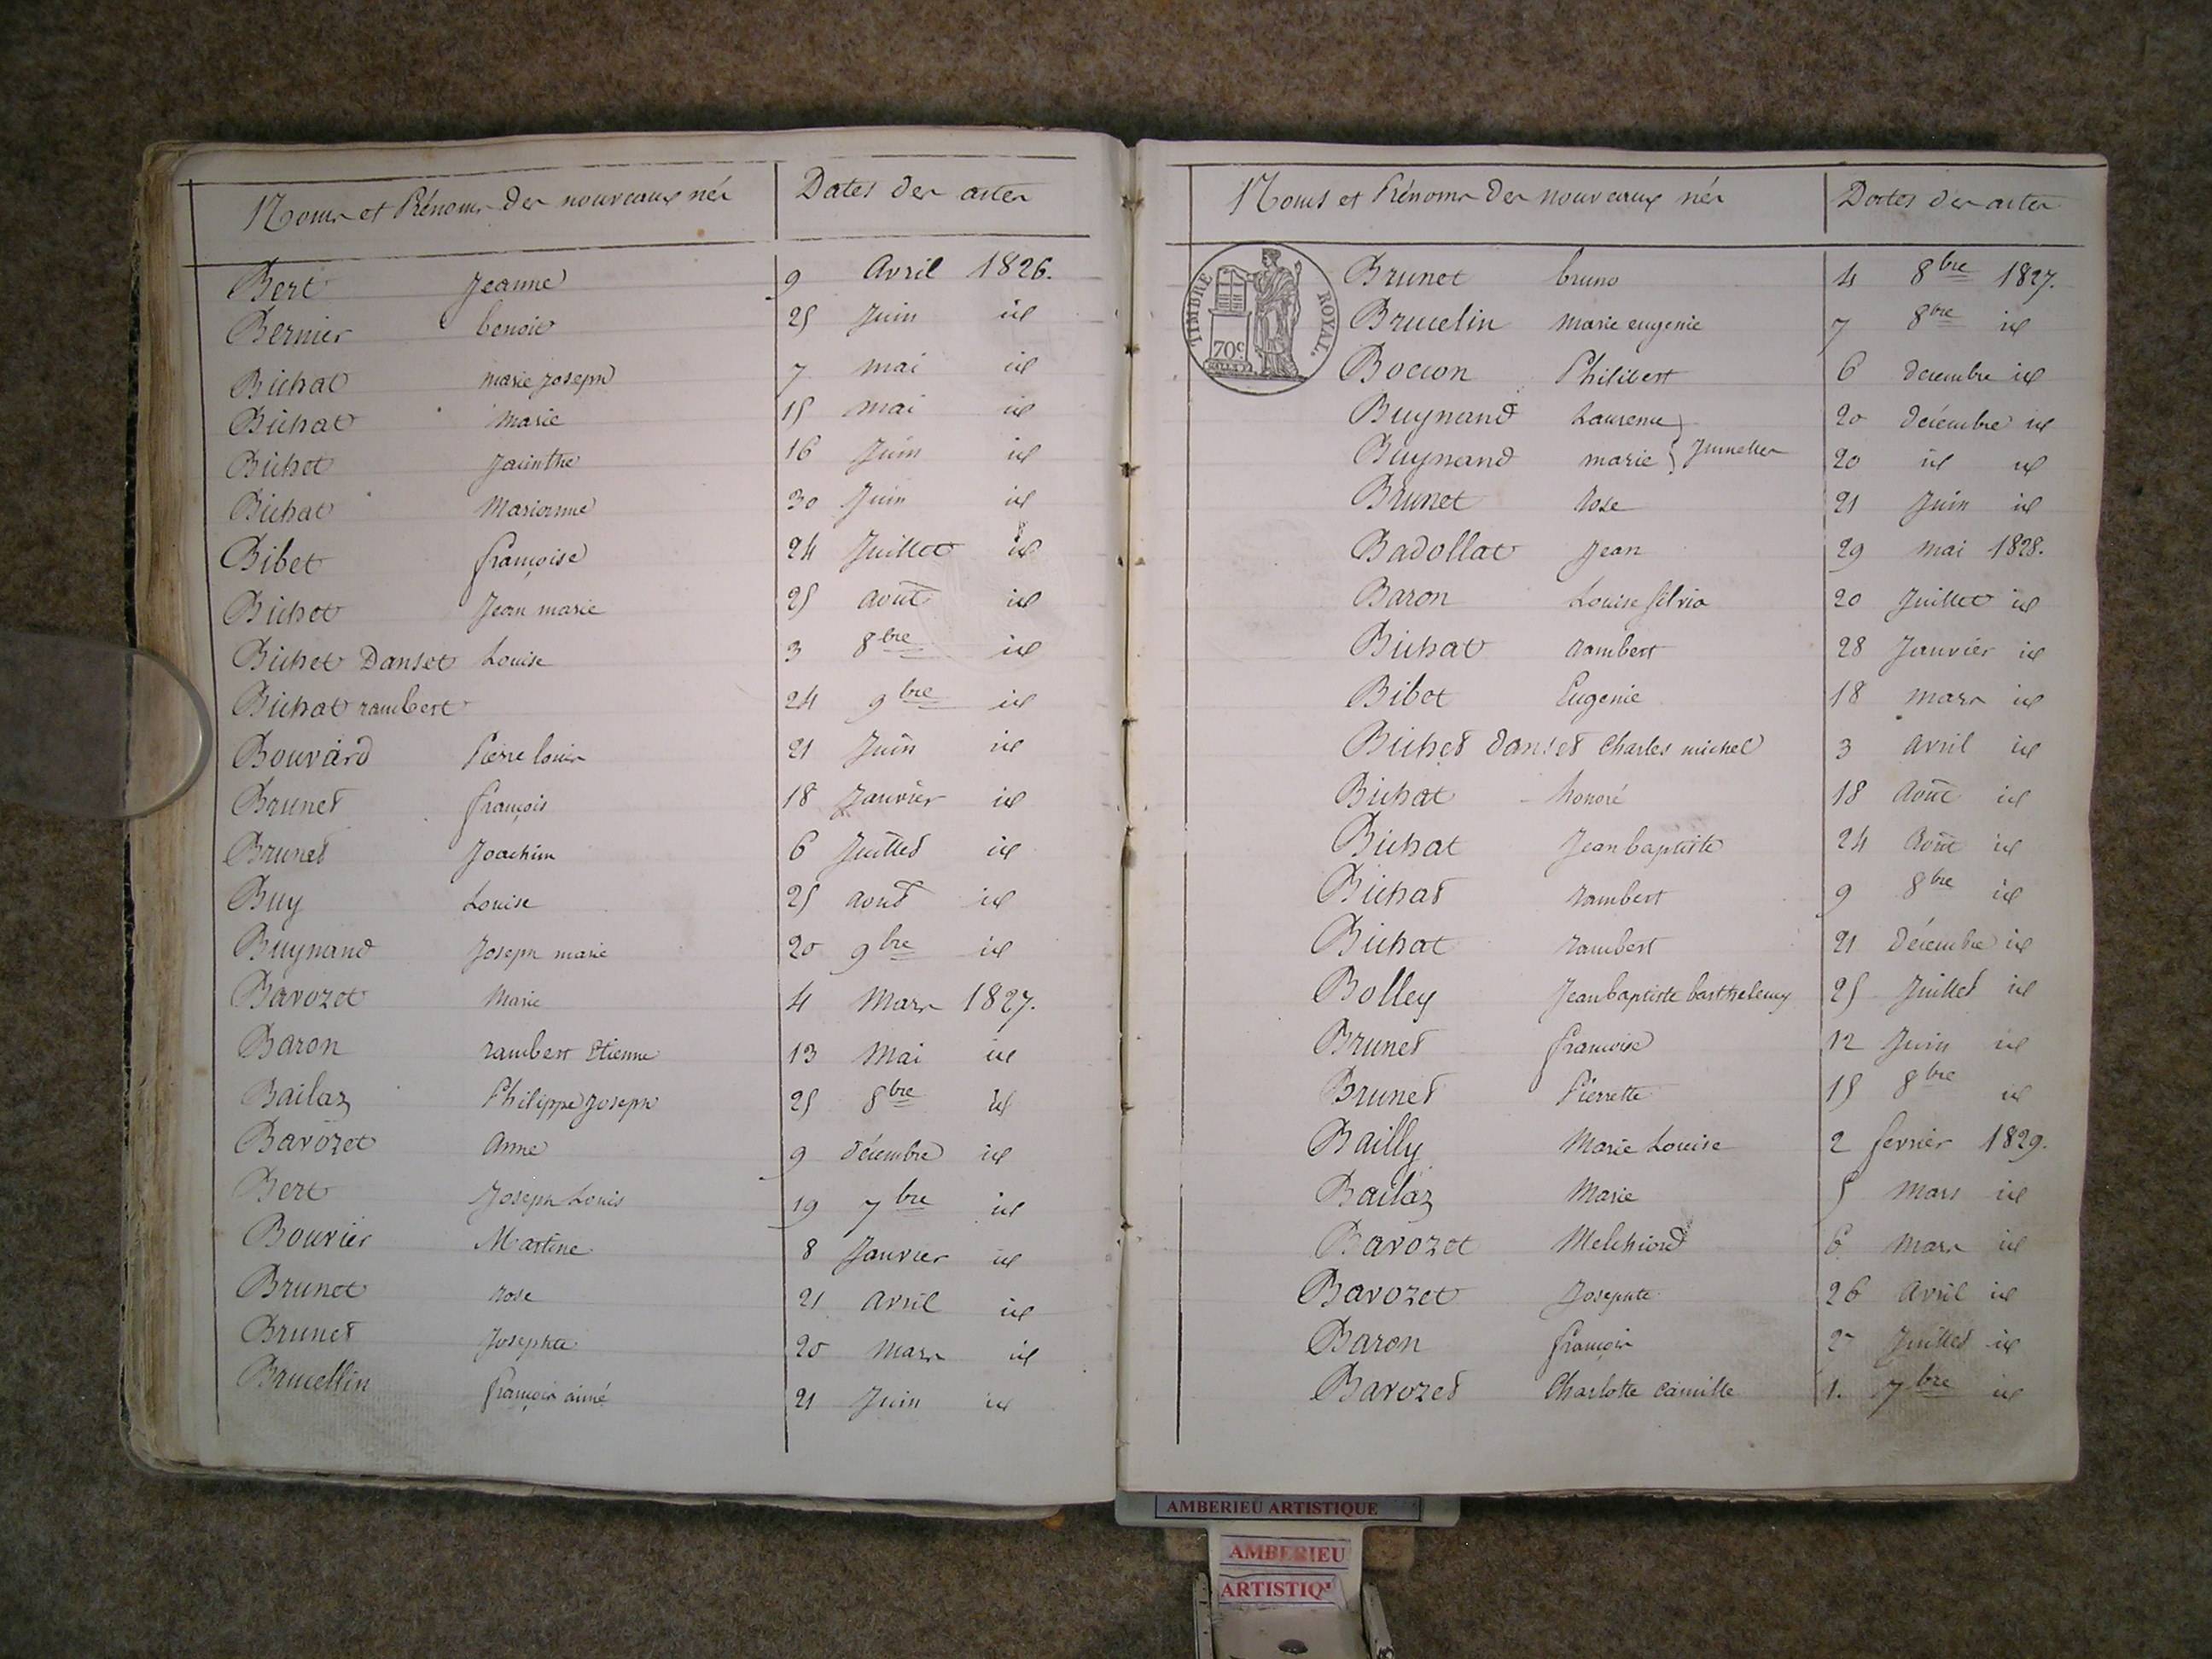 Noms et Prénoms des nouveaux nés Dates des actes
Bert Jeanne 9 Avril 1826.
Bernier benoit 25 Juin id
Bichat marie joseph 7 mai id
Bichat Marie 15 mai id
Bichet Jacinthe 16 Juin id
Bichat Marianne 30 Juin id
Bibet françoise 24 Juillet id
Bichet Jean marie 25 août id
Bichet Danset Louise 3 8bre id
Bichat rambert 24 9bre id
Bouvard Pierre louis 21 Juin id
Brunet françois 18 Janvier id
Brunet Joachim 6 Juillet id
Buy Louise 25 août id
Buynand Joseph marie 20 9bre id
Bavozet Marie 4 Mars 1827.
Baron rambert Etienne 13 Mai id
Bailaz Philippe Joseph 25 8bre id
Bavozet Anne 9 décembre id
Bert Joseph Louis 19 7bre id
Bouvier Martine 8 Janvier id
Brunet rose 21 Avril id
Brunet Josephte 20 Mars id
Brucellin françois aimé 21 Juin id
Noms et Prénoms des nouveaux nés Dates des actes
TIMBRE ROYAL.
70c
Brunet bruno 4 8bre 1827.
Brucelin Marie eugenie 7 8bre id
Boccon Philibert 6 decembre id
Buynand Laurence 20 décembre id
Buynand marie Jumelles 20 id id
Brunet Rose 21 Juin id
Badollat Jean 29 mai 1828.
Baron Louise Silvia 20 Juillet id
Bichat rambert 28 Janvier id
Bibet Eugenie 18 mars id
Bichet danset Charles michel 3 avril id
Bichat honoré 18 Août id
Bichat Jean baptiste 24 Août id
Bichat rambert 9 8bre id
Bichat rambert 21 Décembre id
Bolley Jean baptiste barthelemy 25 Juillet id
Brunet françoise 12 Juin id
Brunet Pierrette 15 8bre id
Bailly Marie Louise 2 fevrier 1829.
Bailaz Marie 5 Mars id
Bavozet Melchiord 6 Mars id
Bavozet Josephte 26 Avril id
Baron françois Juillet id
Bavozet Charlotte Camille 1. 7bre id
AMBERIEU ARTISTIQUE
AMBERIEU
ARTISTIQ